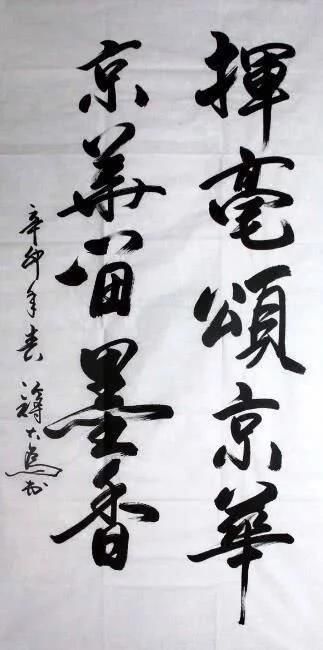 揮毫頌京華
京華留墨香
辛卯年春